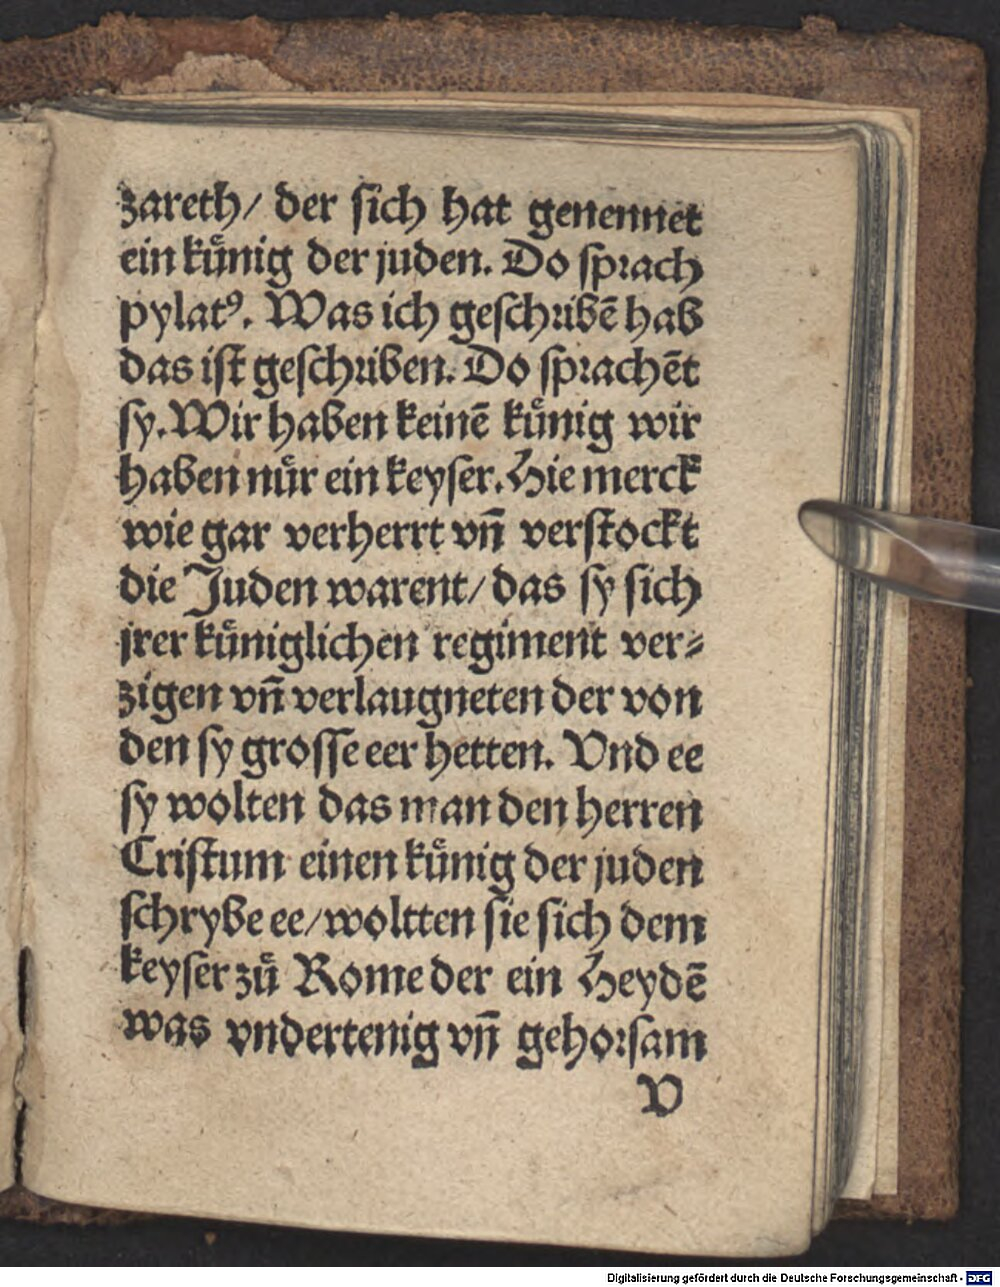 zareth/ der sich hat genennet
ein kuͤnig der juden. Do sprach
pylatꝰ. Was ich geschribē hab
das ist geschriben. Do sprachēt
sy. Wir haben keinē kuͤnig wir
haben nuͤr ein keyser. Hie merck
wie gar verherrt vñ verstockt
die Juden warent/ das sy sich
jrer kuͤniglichen regiment ver⸗
zigen vñ verlaugneten der von
den sy grosse eer hetten. Vnd ee
sy wolten das man den herren
Cristum einen kuͤnig der juden
schrybe ee/ woltten sie sich dem
keyser zuͤ Rome der ein Heydē
was vndertenig vñ gehorsam
v
Digitalisierung gefördert durch die Deutsche Forschungsgemeinschaft - DFG